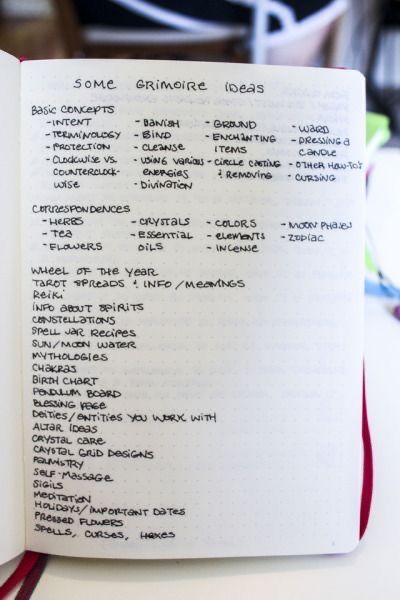 SOME GRIMOIRE IDEAS
BASIC CONCEPTS
-INTENT
-TERMINOLOGY
-PROTECTION
-CLOCKWISE VS. COUNTERCLOCK-
WISE
-BANISH
-BIND
-CLEANSE
-USING VARIOUS
ENERGIES
-DIVINATION
-GROUND
-ENCHANTING
ITEMS
-CIRCLE CASTING
& REMOVING
-WARD
-DRESSING A
CANDLE
-OTHER HOW-TO'S
-CURSING
CORRESPONDENCES
-HERBS
-TEA
-FLOWERS
-CRYSTALS
-ESSENTIAL
OILS
-COLORS
-ELEMENTS
-INCENSE
-MOON PHASES
-ZODIAC
WHEEL OF THE YEAR
TAROT SPREADS & INFO/MEANINGS
REIKI
INFO ABOUT SPIRITS
CONSTELLATIONS
SPELL JAR RECIPES
SUN/MOON WATER
MYTHOLOGIES
CHAKRAS
BIRTH CHART
PENDULUM BOARD
BLESSING PAGE
DEITIES/ENTITIES YOU WORK WITH
ALTAR IDEAS
CRYSTAL CARE
CRYSTAL GRID DESIGNS
PALMISTRY
SELF-MASSAGE
SIGILS
MEDITATION
HOLIDAYS/IMPORTANT DATES
PRESSED FLOWERS
SPELLS, CURSES, HEXES